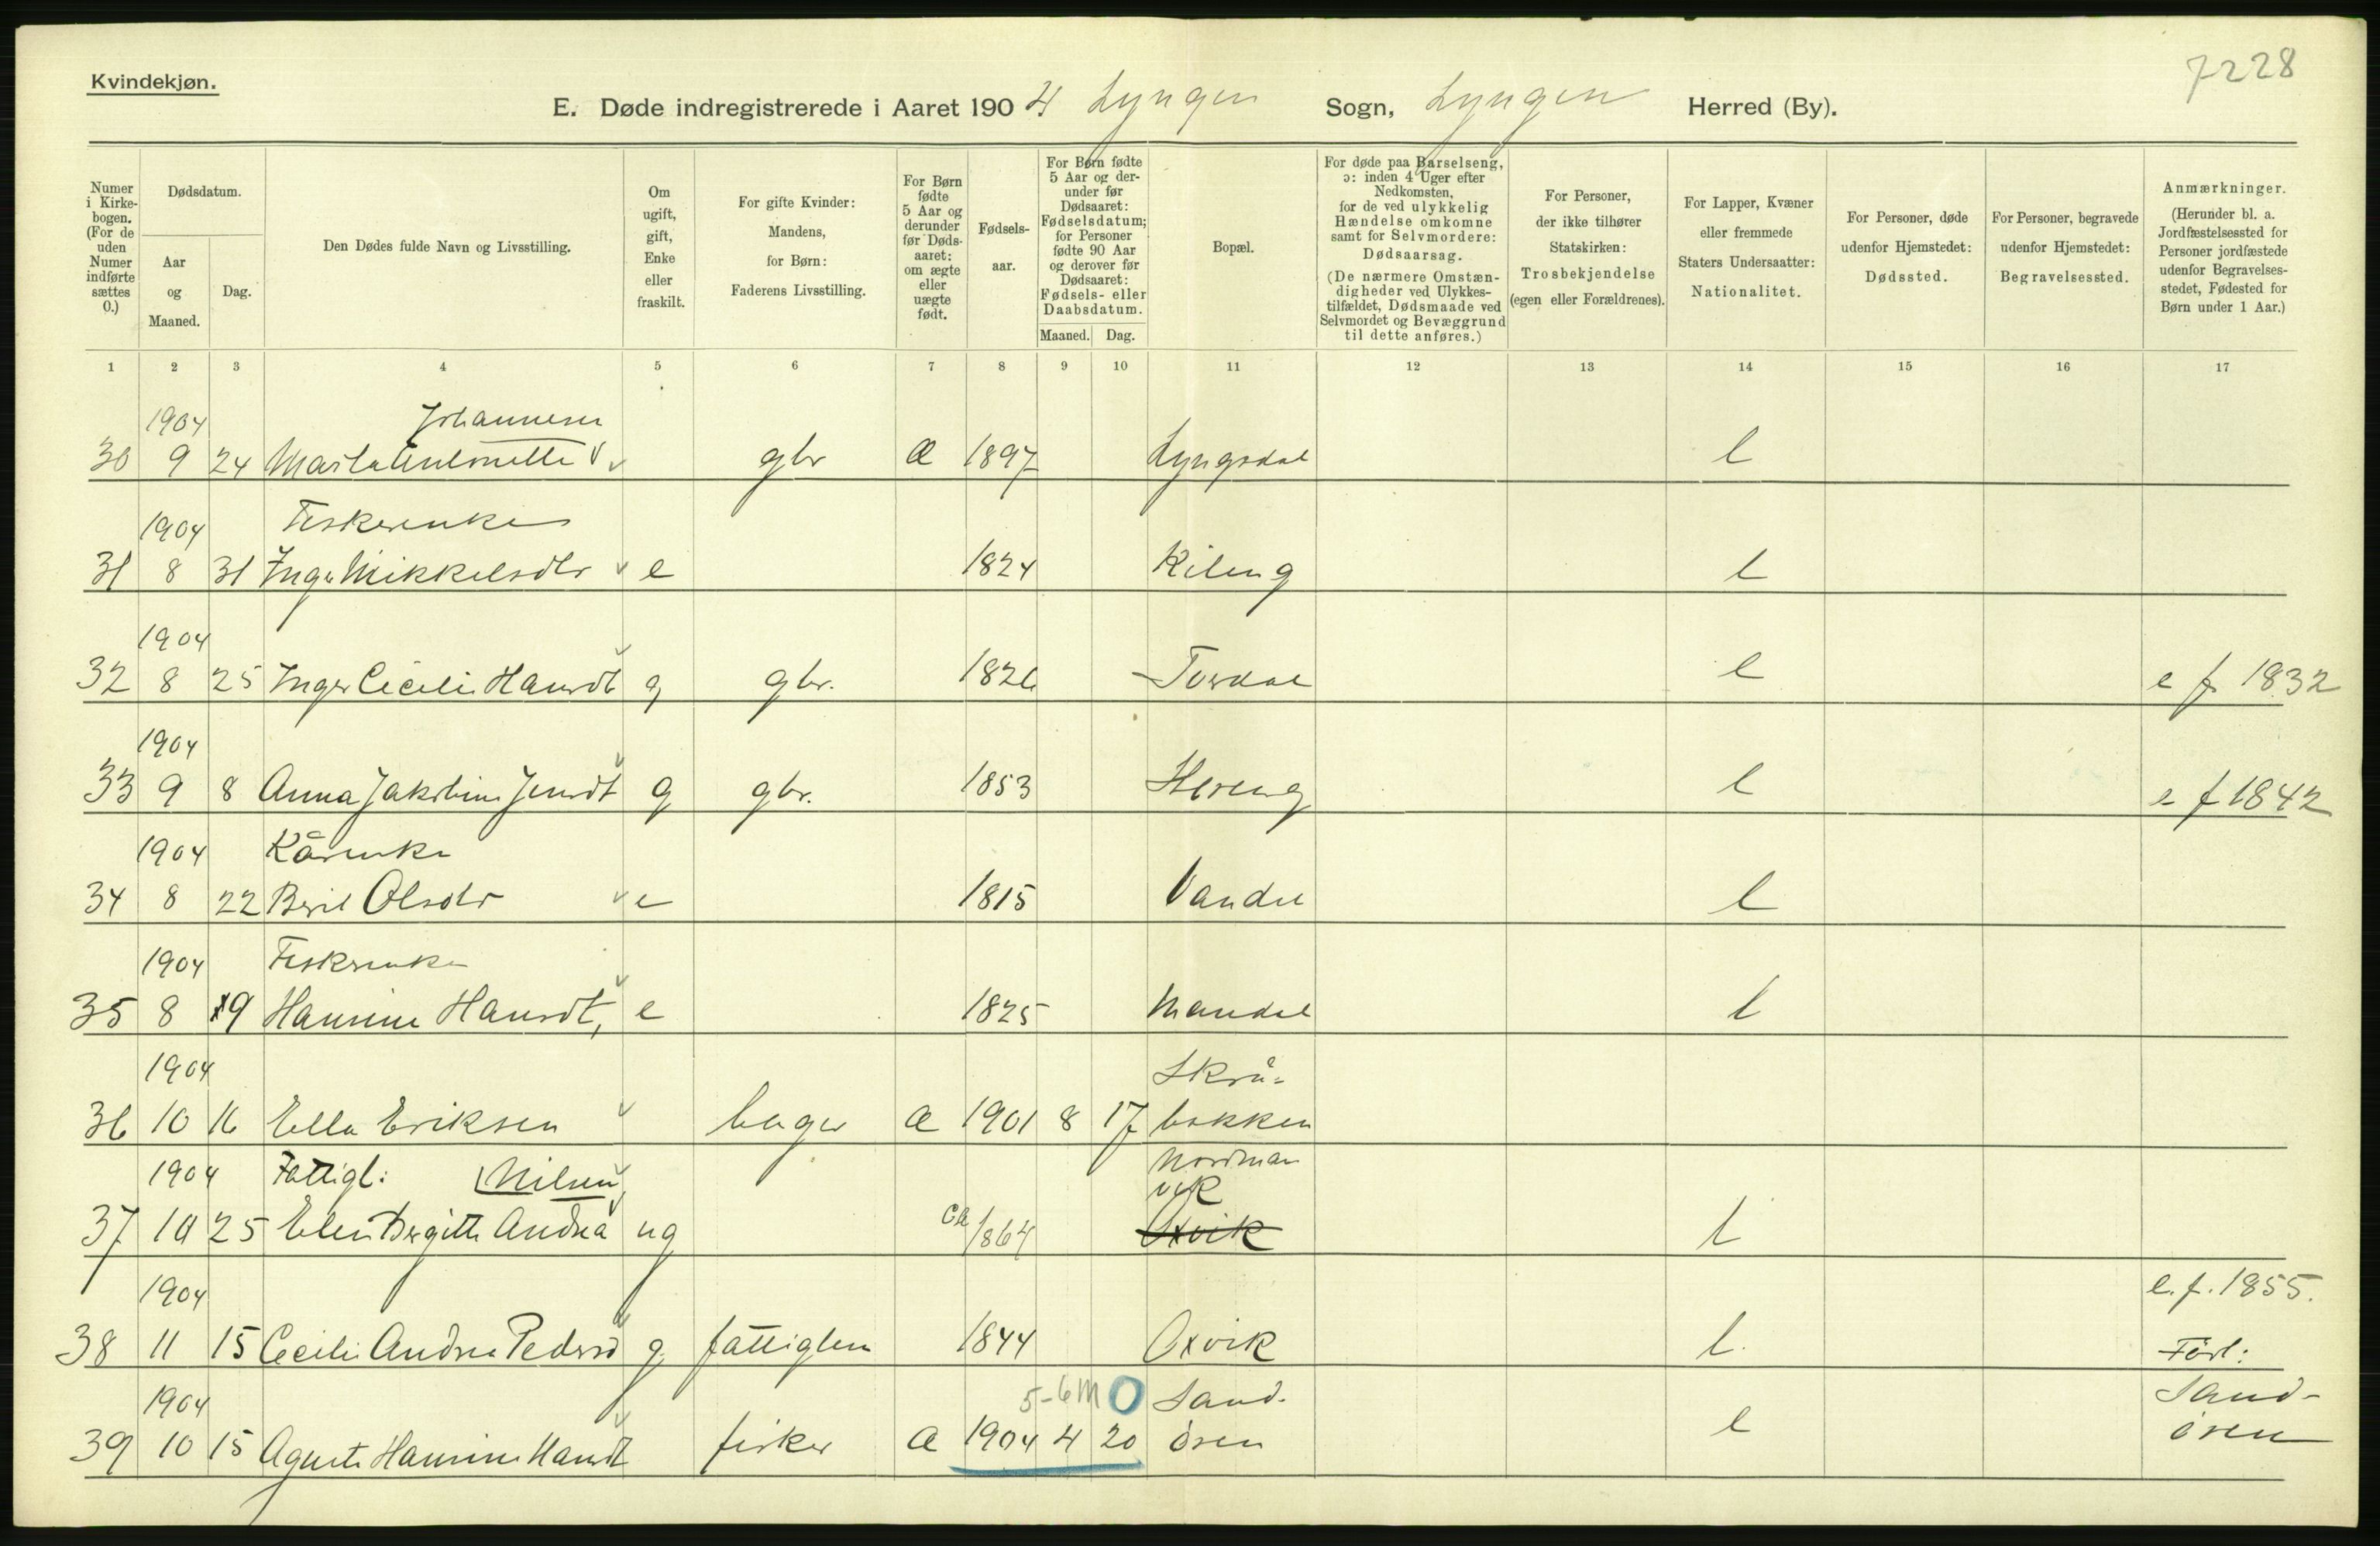 Kvindekjøn.
7228
E. Døde indregistrerede i Aaret 1904 Lyngen Sogn, Lyngen Herred (By).
Numer i Kirkebogen. (For de uden Numer indførte sættes 0.)
Dødsdatum.
Aar og Maaned.
Dag.
Den Dødes fulde Navn og Livsstilling.
Om ugift, gift, Enke eller fraskilt.
For gifte Kvinder: Mandens, for Børn: Faderens Livsstilling.
For Børn fødte 5 Aar og derunder før Dødsaaret: om ægte eller uægte født.
Fødselsaar.
For Børn fødte 5 Aar og derunder før Dødsaaret: Fødselsdatum; for Personer fødte 90 Aar og derover før Dødsaaret: Fødsels- eller Daabsdatum.
Maaned. Dag.
Bopæl.
For døde paa Barselseng, ɔ: inden 4 Uger efter Nedkomsten, for de ved ulykkelig Hændelse omkomne samt for Selvmordere: Dødsaarsag.
(De nærmere Omstændigheder ved Ulykkestilfældet, Dødsmaade ved Selvmordet og Bevæggrund til dette anføres.)
For Personer, der ikke tilhører Statskirken: Trosbekjendelse (egen eller Forældrenes).
For Lapper, Kvæner eller fremmede Staters Undersaatter: Nationalitet.
For Personer, døde udenfor Hjemstedet: Dødssted.
For Personer, begravede udenfor Hjemstedet: Begravelsessted.
Anmærkninger.
(Herunder bl. a. Jordfæstelsessted for Personer jordfæstede udenfor Begravelsesstedet, Fødested for Børn under 1 Aar.)
1 2 3 4 5 6 7 8 9 10 11 12 13 14 15 16 17
1904 Johannesen
30 9 24 gbr Æ 1897 Lyngsdal l
1904 Fiskerenke
31 8 31 Inger Mikkelsdtr e 1824 Kileng l
1904
32 8 25 Inger Cecilie Hansdt g gbr. 1826 l e f 1832
1904
33 9 8 Anna Jakobine Jensdt g gbr. 1853 l e f 1842
1904 Kårenke
34 8 22 Berit Olsdtr e 1815 l
1904 Fiskerenke
35 8 19 Hansine Hansdt, e 1825 Mandal l
1904 Skrå-
36 10 16 Ella Eriksen bager Æ 1901 8 17 bakken
1904 Fattigl: Nilsen Nordman
vik
37 10 25 Elen Bergitte Andrea ug Ca 1864 Oxvik l
1904 e. f. 1855.
38 11 15 Cecilie Andrea Pedersd g fattiglem 1844 Oxvik l.
Født:
1904 5-6 M 0 Sand- Sand-
39 10 15 Hansine Hansdt fisker Æ 1904 4 20 ören l ören